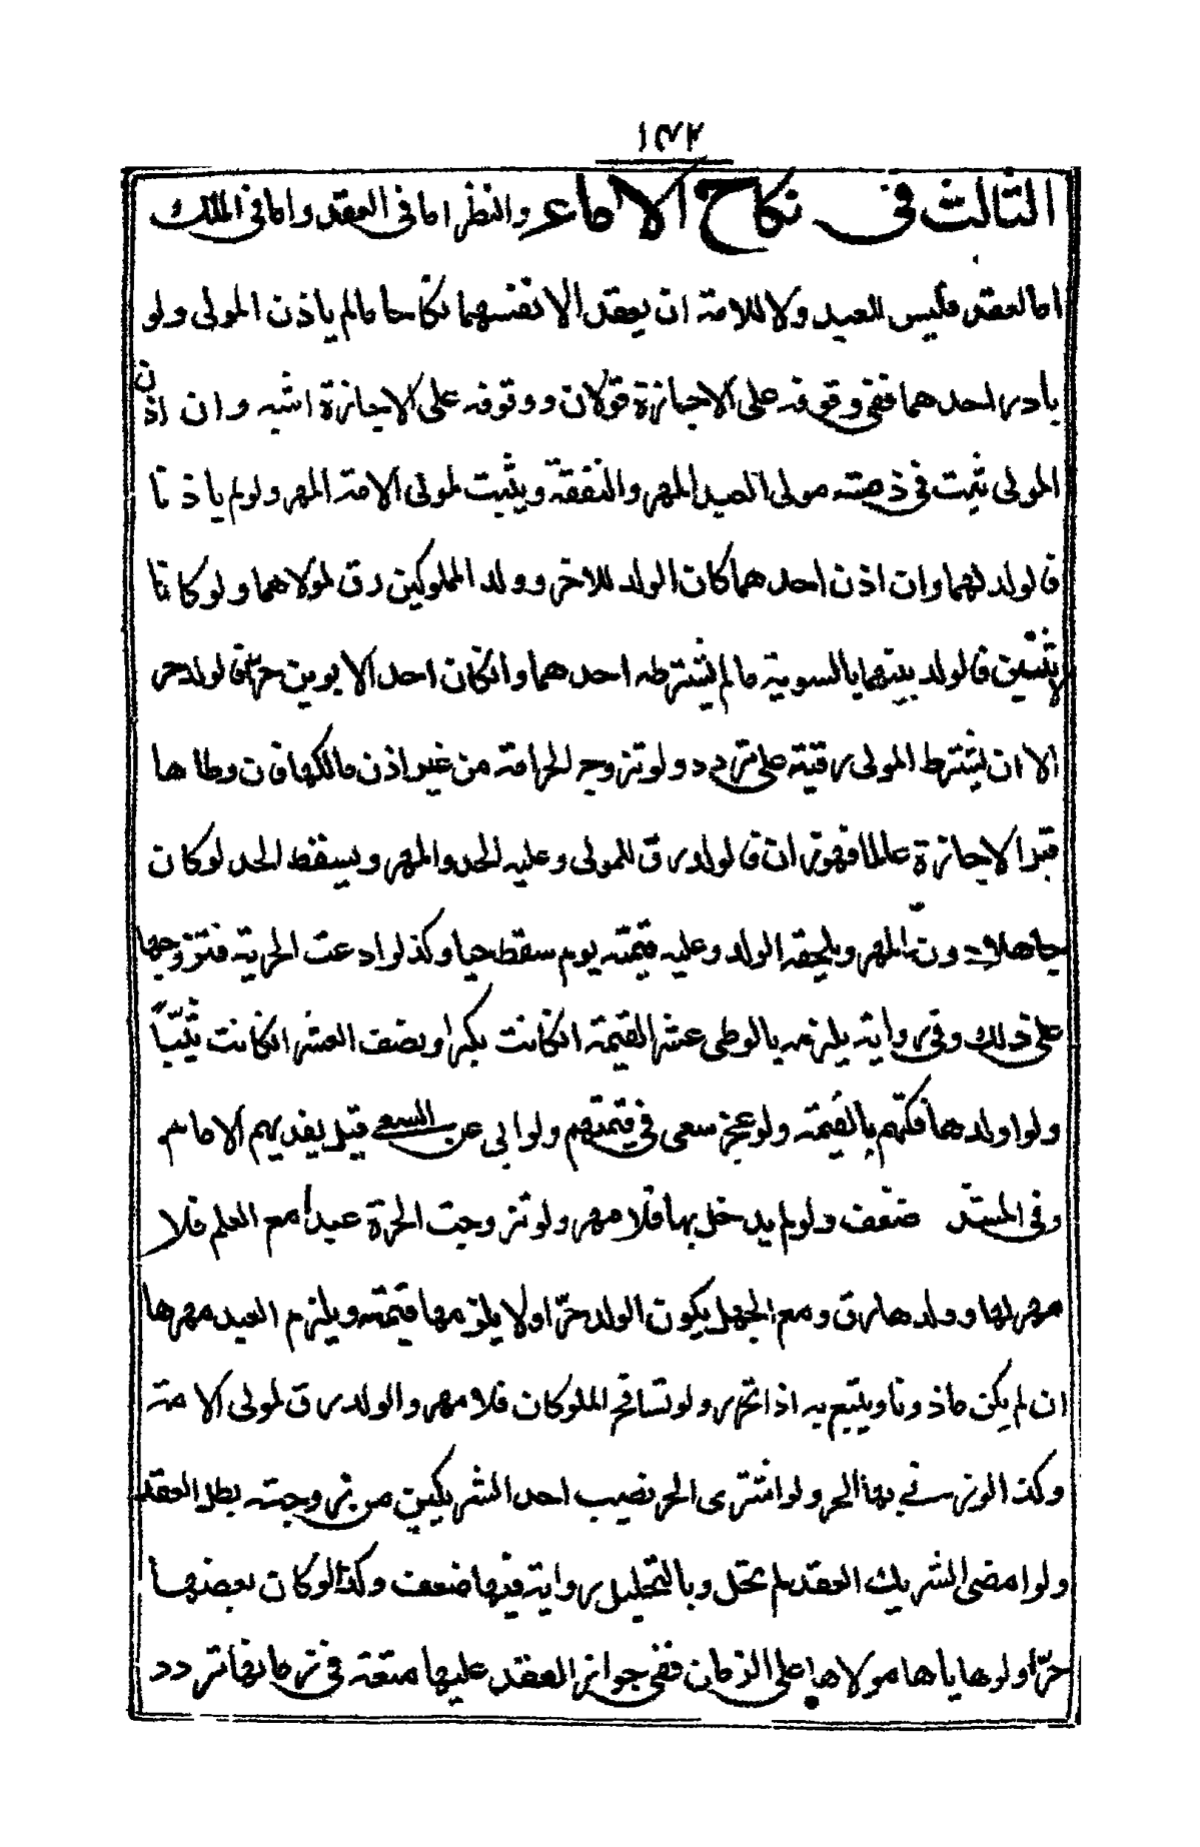 ١٧٢
الثالث في نكاح الاماء والنظر اما في العقد واما في الملك
اما العقد فليس للعبد ولا للامة ان يعقد الانفسهما نكاحا مالم ياذن المولى ولو
بادر احدهما ففي وقوفه على الاجازة قولان ووقوفه على الاجازة اشبه وان اذن
المولى ثبت في ذمته مولى العبد المهر والنفقة ويثبت لمولى الامة المهر ولو لم ياذنا
فالولد لهما وان اذن احدهما كان الولد للاخر وولد المملوكين رق لمولاهما ولو كانا
لاثنين فالولد بينهما بالسوية مالم يشترطه احدهما وانكان احد الابوين حرّا فالولد حر
الا ان يشترط المولى رقيته على تردد ولو تزوج الحر امة من غير اذن مالكها فان وطاها
قبل الاجازة عالما فهو زان فالولد رق للمولى وعليه الحد والمهر ويسقط الحد لو كان
جاهلا دون المهر ويلحقه الولد وعليه قيمته يوم سقط حيا وكذا لو ادعت الحرية فتزوجها
على ذلك وفي رواية يلزمه بالوطى عشر القيمة انكانت بكرا ونصف العشر انكانت ثيّبًا
ولو اولدها فكهم بالقيمة ولو عجز سعى في قيمتهم ولو ابى عن السعى قيل يفديهم الامام
وفي المستند ضعف ولو لم يدخل بها فلا مهر ولو تزوجت الحرة عبدا مع العلم فلا
مهر لها وولدها رق ومع الجهل يكون الولد حرّا ولا يلزمها قيمته ويلزم العبد مهرها
ان لم يكن ماذونا ويتبع به اذا تحرر ولو تسافح المملوكان فلا مهر والولد رق لمولى الامة
وكذا لو زنى بها الحر ولو اشترى الحر نصيب احد الشريكين من زوجته بطل العقد
ولو امضى الشريك العقد لم يحل وبالتحليل رواية فيها ضعف وكذا لو كان بعضها
حرّا ولو هاياها مولاها على الزمان ففي جواز العقد عليها متعة في زمانها تردد